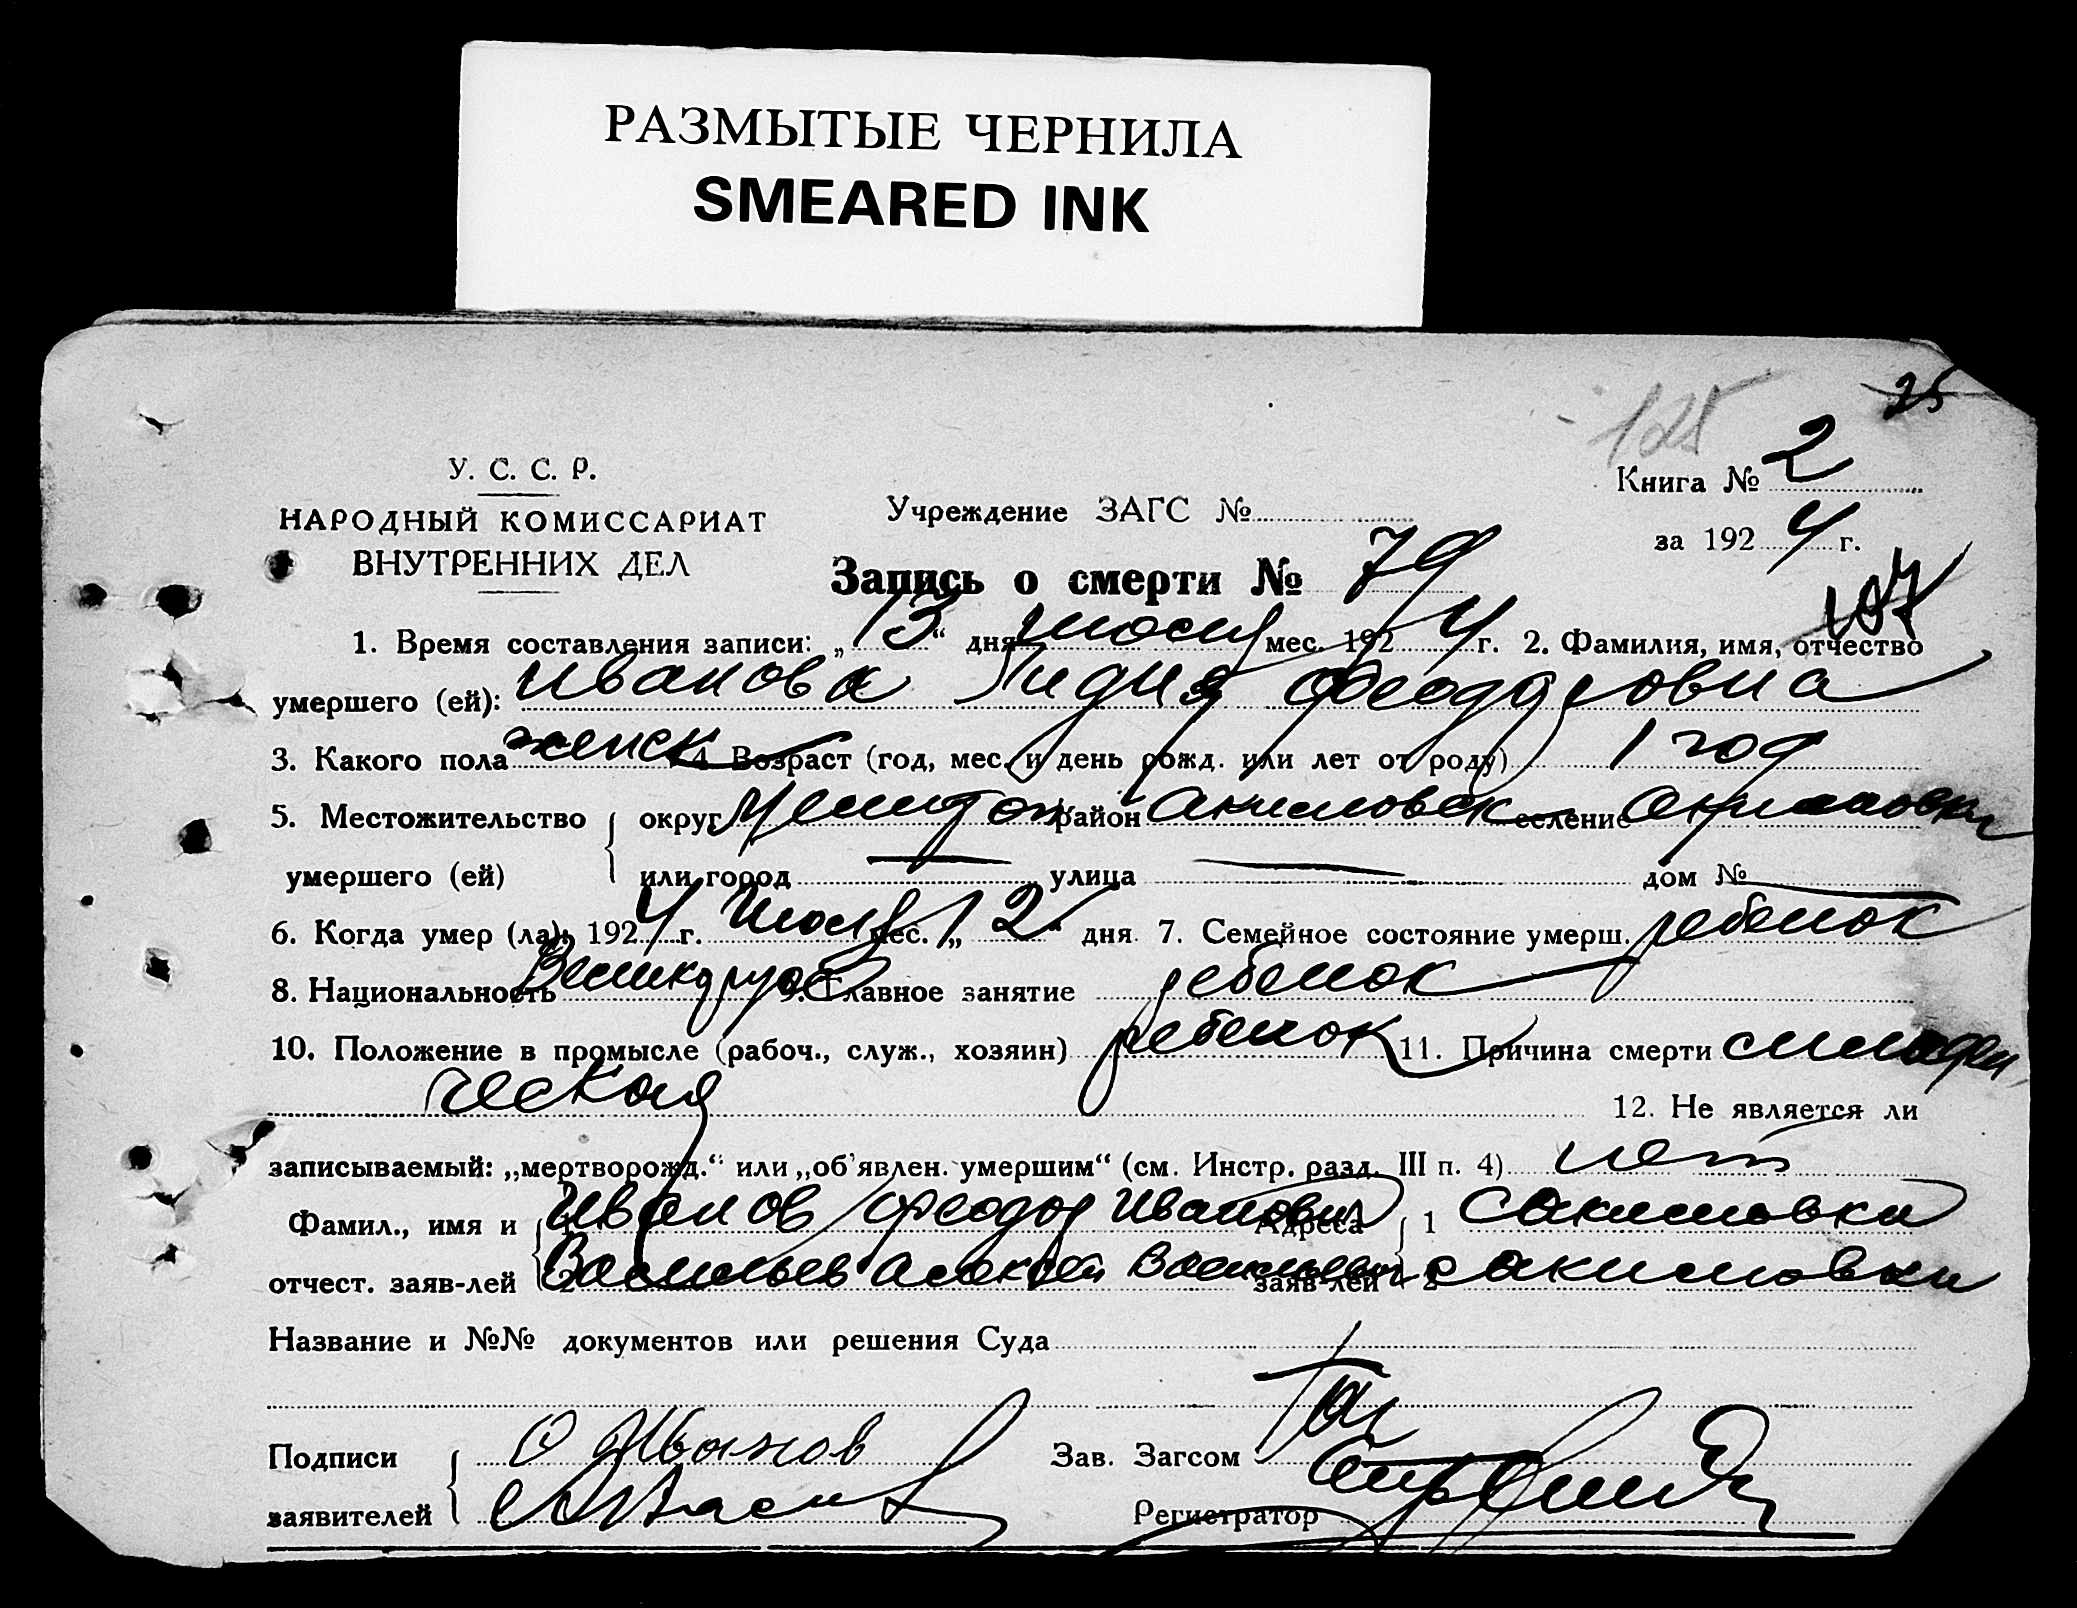 РАЗМЫТЫЕ ЧЕРНИЛА
SMEARED INK
25
125
У. С. С. Р.
НАРОДНЫЙ КОМИССАРИАТ
ВНУТРЕННИХ ДЕЛ
Книга № 2
Учреждение ЗАГС №
за 1924 г.
Запись о смерти № 79
107
1. Время составления записи: „13“ дня июля мес. 1924 г. 2. Фамилия, имя, отчество
умершего (ей): Иванова Лидия Феодоровна
3. Какого пола женск 4. Возраст (год, мес. и день рожд. или лет от роду) 1 год
5. Местожительство округ Мелитоп район Акимовск селение Акимовки
умершего (ей) или город — улица — дом № —
6. Когда умер (ла): 1924 г. Июля мес. „12“ дня 7. Семейное состояние умерш. ребенок
8. Национальность Великорус 9. Главное занятие ребенок
10. Положение в промысле (рабоч., служ., хозяин) ребенок 11. Причина смерти
ческая 12. Не является ли
записываемый: „мертворожд.“ или „об'явлен. умершим“ (см. Инстр. разд. III п. 4) нет
Фамил., имя и 1 Иванов Феодор Иванович Адреса 1 с Акимовки
отчест. заяв-лей 2 Васильев Алексей Васильевич заяв-лей 2 с Акимовки
Название и №№ документов или решения Суда
Подписи Ф Иванов Зав. Загсом
заявителей Регистратор